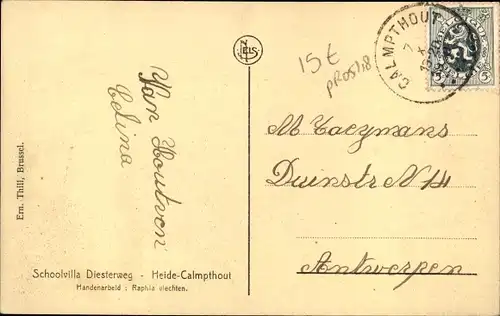 Ern. Thill, Brussel.
NELS
Van Houtven
Celina
Schoolvilla Diesterweg - Heide-Calmpthout
Handenarbeid : Raphia vlechten.
15€
CALMPTHOUT
7 X
5 5
M Taeymans
Duinstr N 14
Antwerpen